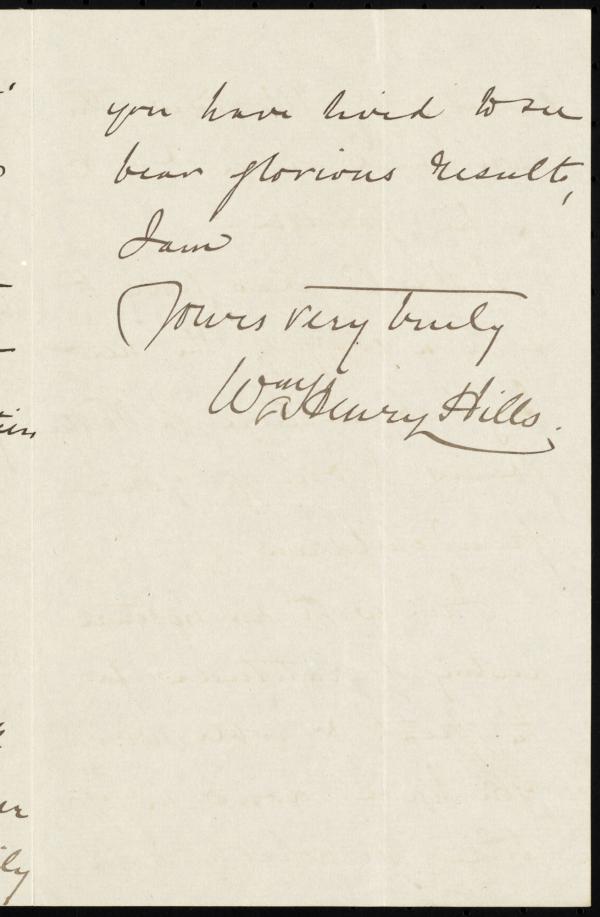 you have lived to see
bear glorious results,
I am
Yours very truly
Wm Henry Hills.